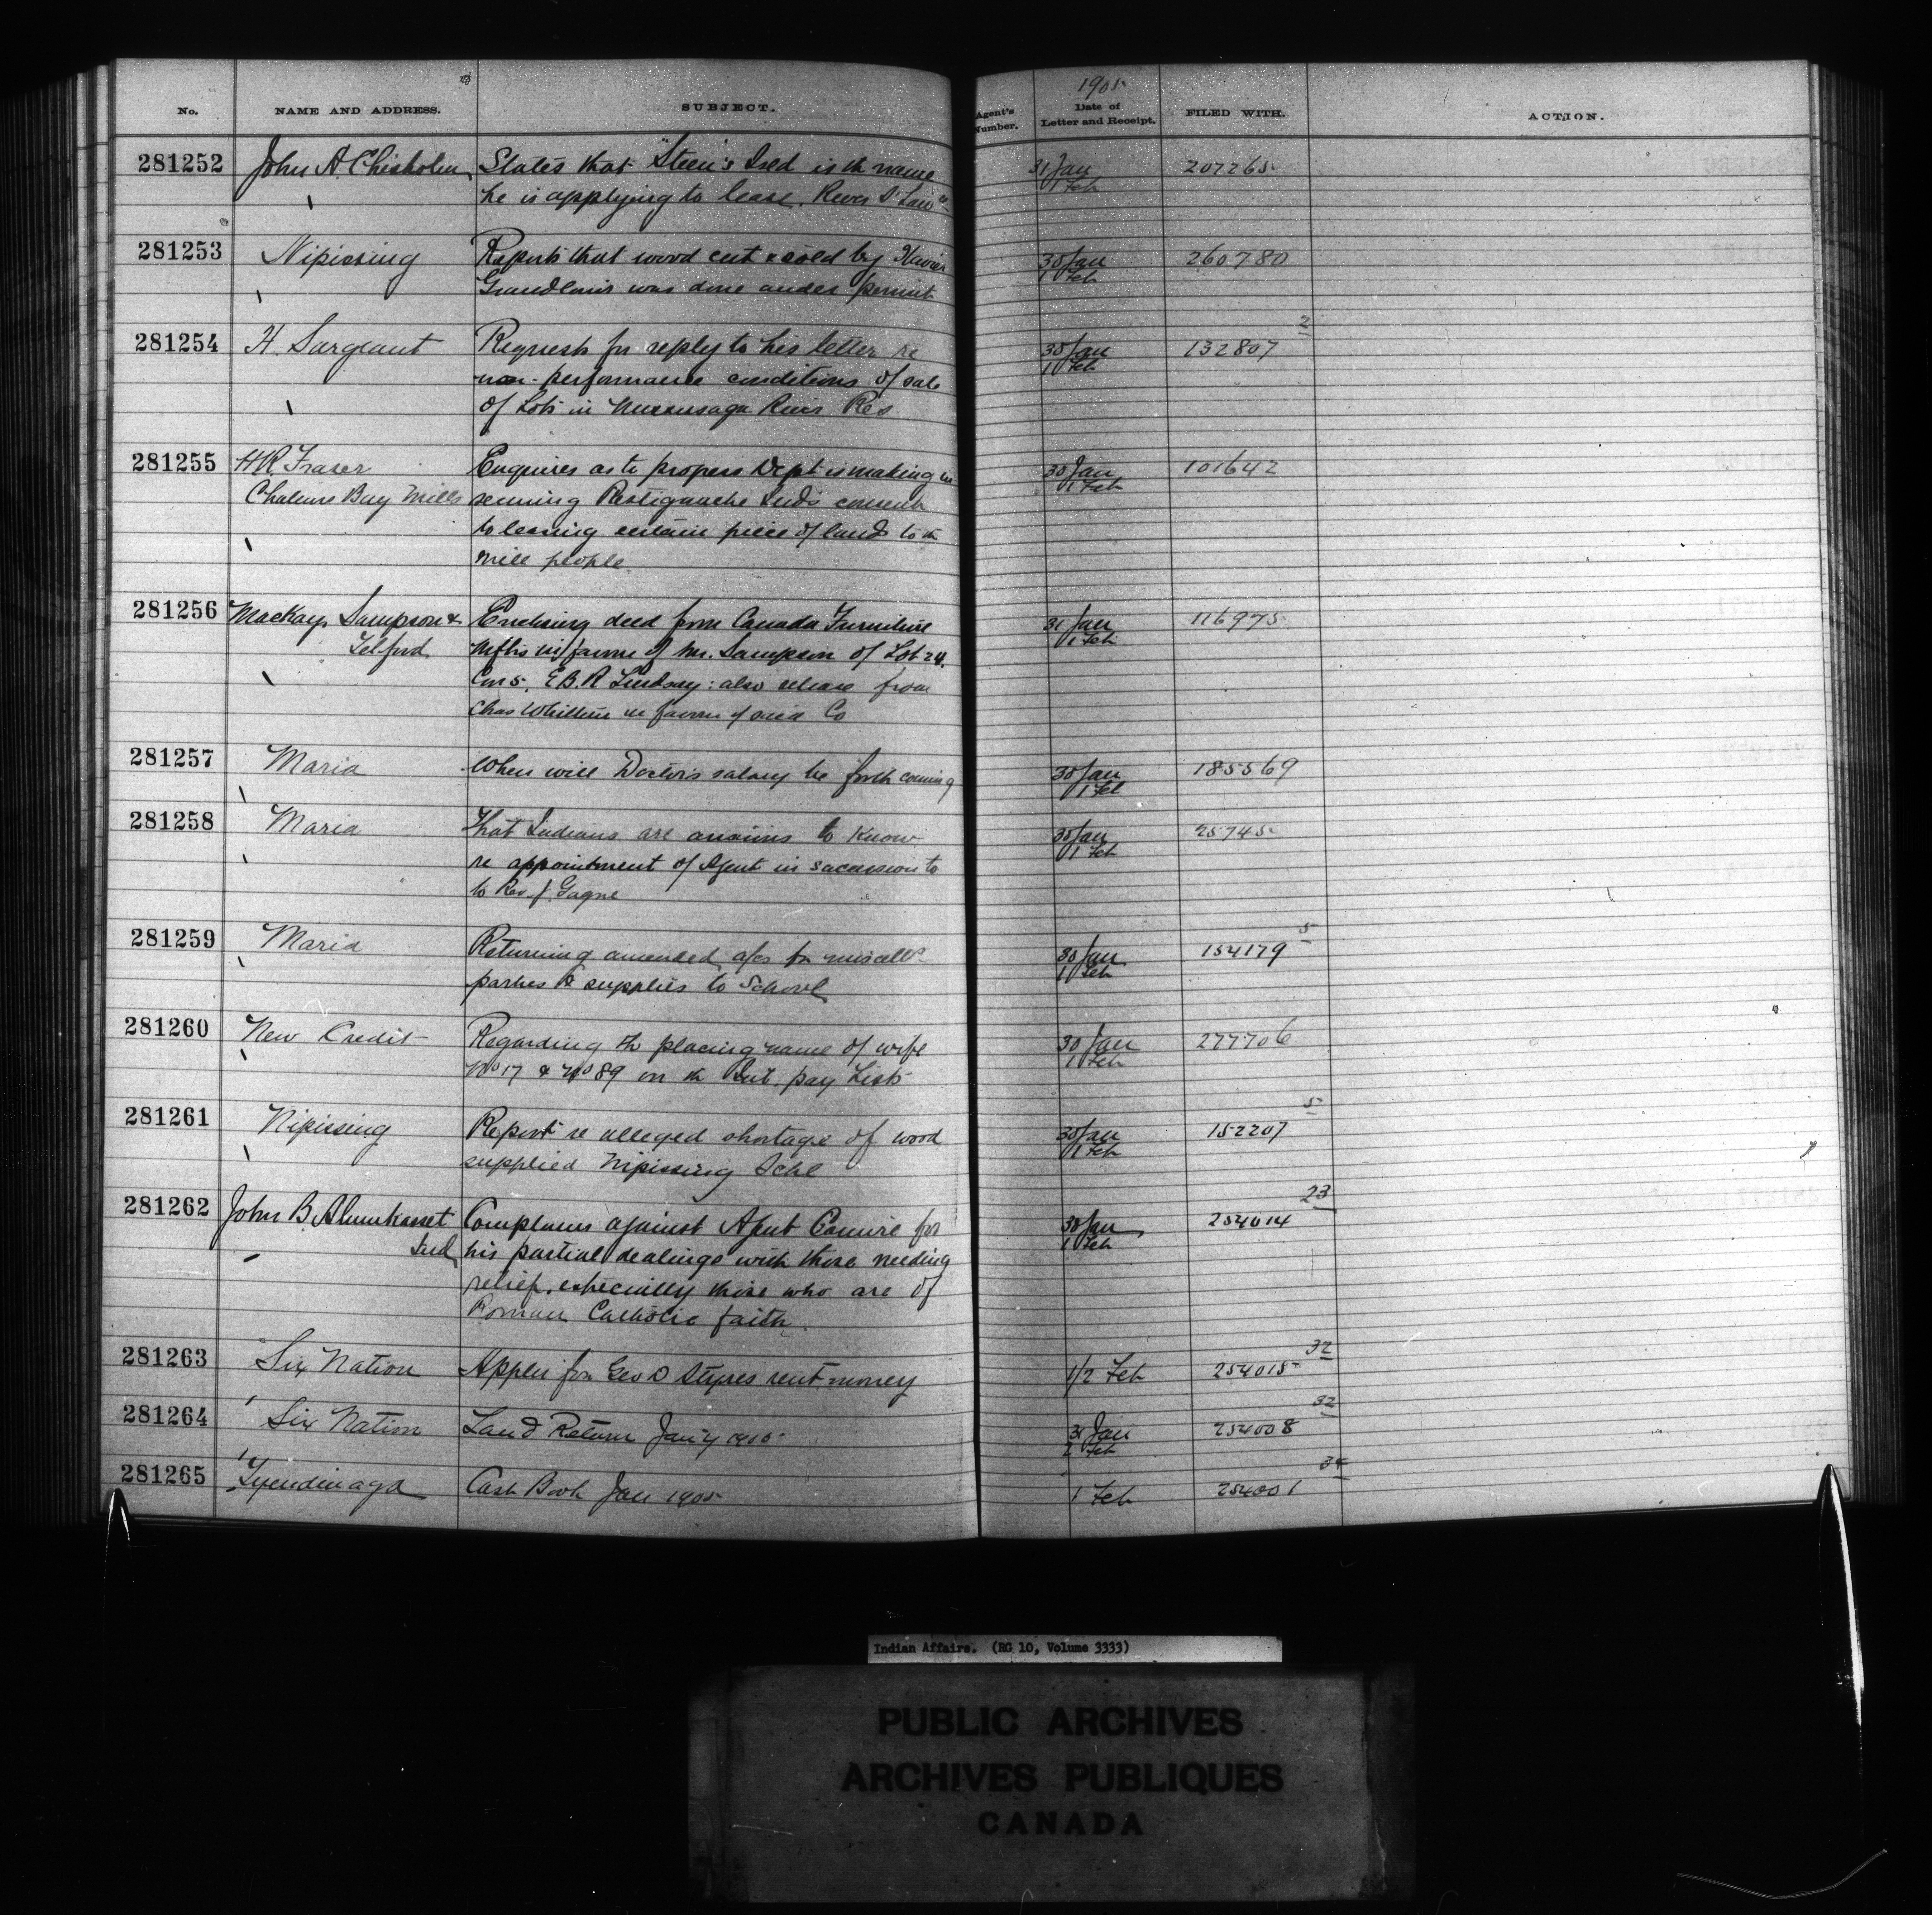 1905
No. NAME AND ADDRESS. SUBJECT. Agent's Number. Date of Letter and Receipt. FILED WITH. ACTION.
281252 John A. Chisholm States that "Steen's Isld is th name 31 Jan 207265
he is applying to lease. River St Law 1 Feb
281253 Nipissing Reports that wood cut & sold by Xavier 30 Jan 260780
Grandlouis was done under permit 1 Feb
2
281254 H. Sargeant Requests for reply to his letter re 30 Jan 132807
non-performance conditions of sale 1 Feb
of Lots in Mississaga River Res
281255 H.R. Fraser Enquires as to progress Dept is making in 30 Jan 101642
Chaleurs Bay Mills securing Restigouche Ind's consent 1 Feb
to leasing certain piece of land to th
mill people.
281256 Mackay, Sampson & Enclosing deed from Canada Furniture 31 Jan 116975
Telford Mftrs in favour of Mr. Sampson of Lot 24. 1 Feb
Con 5, E.B.R Lindsay: also release from
Chas in favour of said Co
281257 Maria When will Doctor's salary be forth coming 30 Jan 185569
1 Feb
281258 Maria That Indians are anxious to know 30 Jan 25745
re appointment of Agent in succession to 1 Feb
to Rev. J. Gagne
5
281259 Maria Returning amended a/cs for miscells 30 Jan 154179
parties re supplies to School 1 Feb
281260 New Credit Regarding th placing name of wife 30 Jan 277706
No 17 & No 89 on th Int. pay List 1 Feb
5
281261 Nipissing Report re alleged shortage of wood 30 Jan 152207
supplied Nipissing Schl 1 Feb
23
281262 John B. Complains against Agent for 30 Jan 254014
Ind his partial dealings with those needing 1 Feb
relief, especially those who are of
Roman Catholic faith.
32
281263 Six Nation Applies for Geo D Styres rent money 1/2 Feb 254015
32
281264 Six Nation Land Return Jan'y 1905 31 Jan 254008
2 Feb
34
281265 Tyendinaga Cash Book Jan 1905 1 Feb 254001
Indian Affairs. (RG 10, Volume 3333)
PUBLIC ARCHIVES
ARCHIVES PUBLIQUES
CANADA